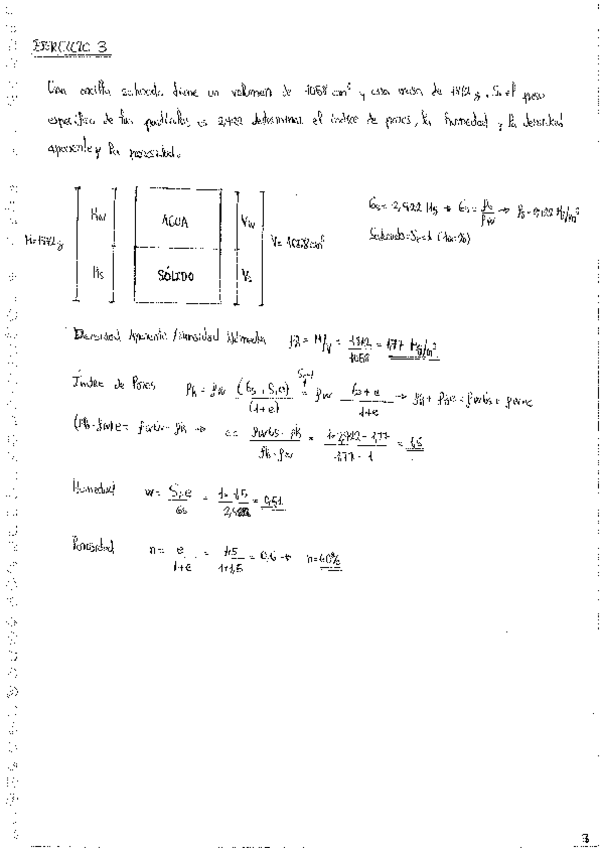 EJERCICIO 3
Una arcilla saturada tiene un volumen de 1058 cm³ y una masa de 1872 g. Si el peso
específico de las partículas es 2,922 determinar el índice de poros, la humedad y la densidad
aparente y la porosidad.
M = 1872 g
Mw
Ms
AGUA
SÓLIDO
Vw
Vs
V = 1058 cm³
Gs = ρs/ρw
Saturado = Sr = 1 (100%)
Densidad Aparente / Densidad Húmeda ρh = M/V = 1872/1058 = 1,77
Índice de Poros ρh = ρw (Gs + Sr e)/(1+e) = ρw (Gs + e)/(1+e) → ρh + ρh e = ρw Gs + ρw e
(ρh - ρw) e = ρw Gs - ρh → e = (ρw Gs - ρh)/(ρh - ρw) = = 1,5
Humedad w = Sr e/Gs = = 0,51
Porosidad n = e/(1+e) = 1,5/(1+1,5) = 0,6 →
3